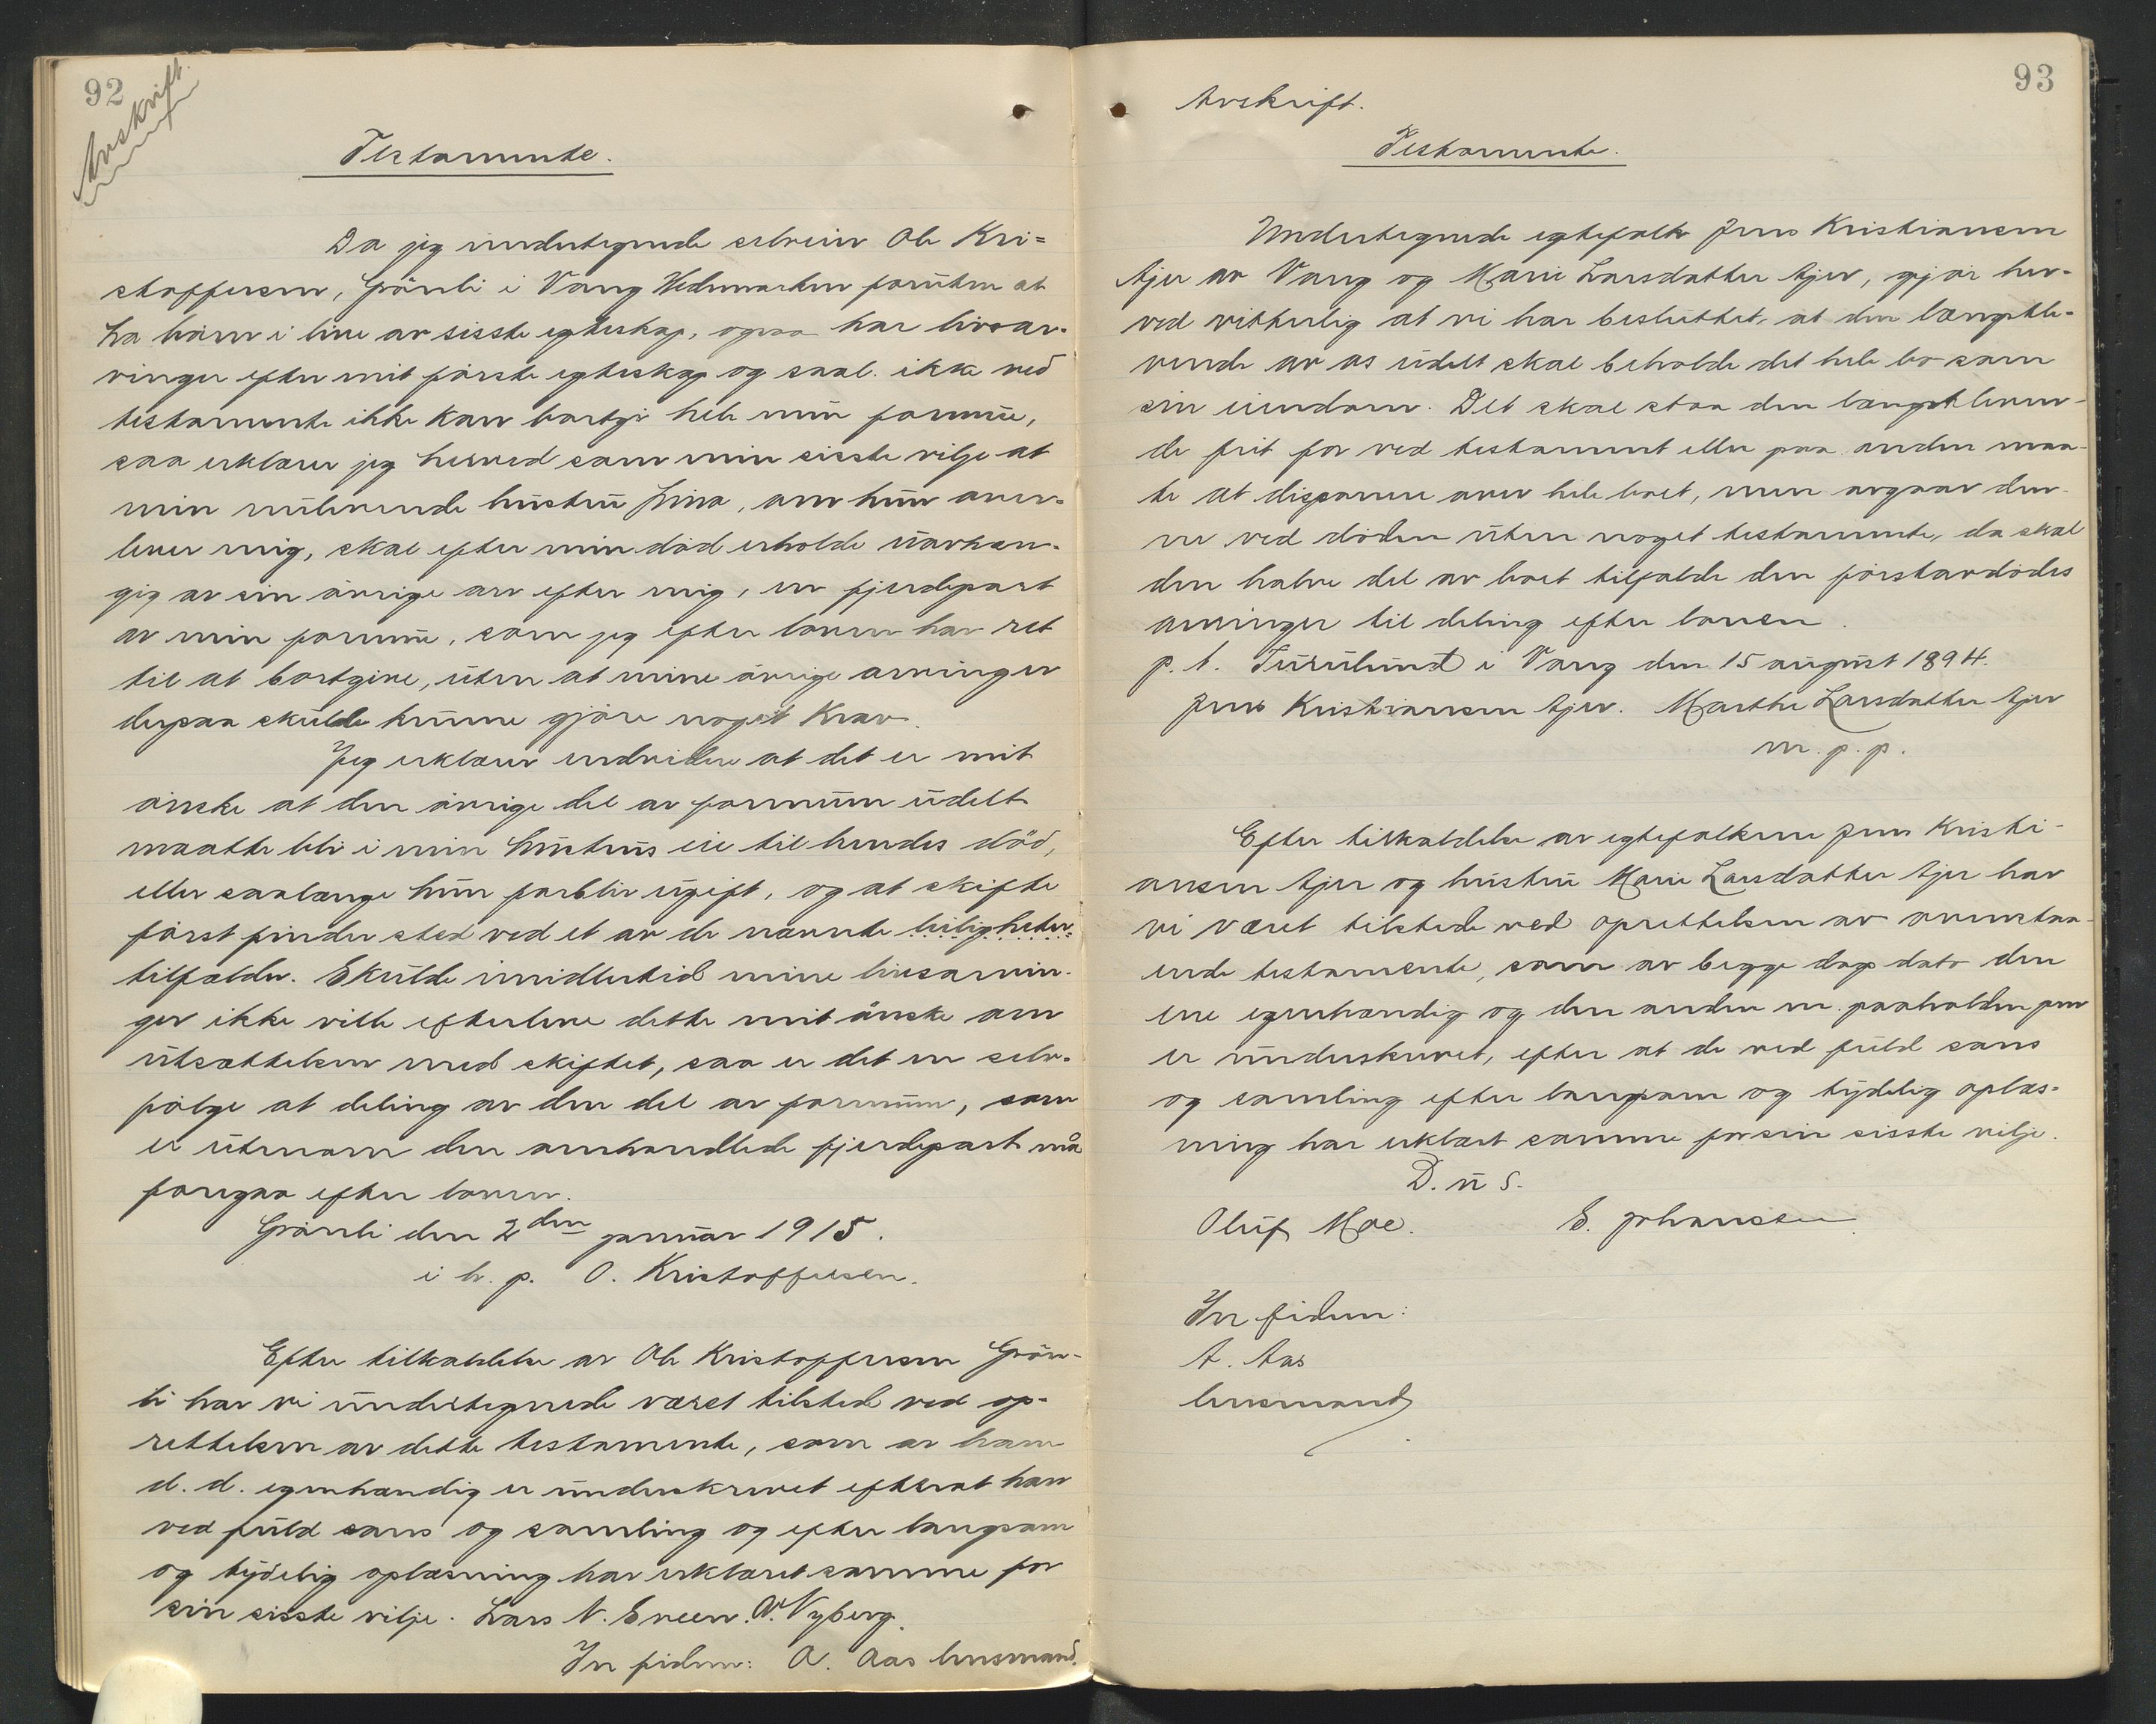 92
Avskrift.
Testamente.
Da jeg undertegnede selveier Ole Kri=
stoffersen, Grönli i Vang Hedemarken foruten at
ha barn i live av sisste egteskap, ogsaa har livsar-
vinger efter mit förste egteskap og saal. ikke ved
testamente ikke kan bortgi hele min formue,
saa erklærer jeg herved som min sisste vilje at
min nulevende hustru Lina, om hun over-
lever mig, skal efter min död erholde uavhæn-
gig av sin övrige arv efter mig, en fjerdepart
av min formue, som jeg efter loven har ret
til at bortgive, uten at mine övrige arvinger
derpaa skulde kunne gjöre noget krav.
Jeg erklærer endvidere at det er mit
önske at den övrige del av formuen udelt
maatte bli i min hustrus eie til hendes död,
eller saalænge hun forblir ugift, og at skifte
först finder sted ved et av de nævnte leiligheter-
tilfælder. Skulde imidlertid mine livsarvin-
ger ikke ville efterleve dette mit önske om
utsættelsen med skiftet, saa er det en selv-
fölge at deling av den del av formuen, som
er utenom den omhandlede fjerdepart må
foregaa efter loven.
Grönli den 2den januar 1915.
i h. p. O. Kristoffersen.
Efter tilkaldelse av Ole Kristoffersen Grön-
li har vi undertegnede været tilstede ved op-
rettelsen av dette testamente, som av ham
d. d. egenhændig er underskrevet efterat han
ved fuld sans og samling og efter langsom
og tydelig oplæsning har erklæret samme for
sin sisste vilje. Lars N. Eveen. A. Nyberg.
In fidem: A. Aas lensmand.
93
Avskrift.
Testamente.
Undertegnede egtefolk Jens Kristiansen
Ajer av Vang og Marie Larsdatter Ajer, gjör her-
ved vitterlig at vi har besluttet, at den længstle-
vende av os udelt skal beholde det hele bo som
sin eiendom. Det skal staa den længstleven-
de frit for ved testament eller paa anden maa-
te at disponere over hele boet, men avgaar den-
ne ved döden uten noget testamente, da skal
den halve del av boet tilfalde den förstavdödes
arvinger til deling efter loven.
p. t. Furulund i Vang den 15 august 1894.
Jens Kristiansen Ajer. Marthe Larsdatter Ajer
m. p. p.
Efter tilkaldelse av egtefolkene Jens Kristi-
ansen Ajer og hustru Marie Larsdatter Ajer har
vi været tilstede ved oprettelsen av ovenstaa-
ende testamente, som av begge dags dato den
ene egenhændig og den anden m. paaholden pen
er underskrevet, efter at de ved fuld sans
og samling efter langsom og tydelig oplæs-
ning har erklært samme for sin sisste vilje.
D. u S.
Oluf Moe. E. Johansen
In fidem:
A. Aas
lensmand